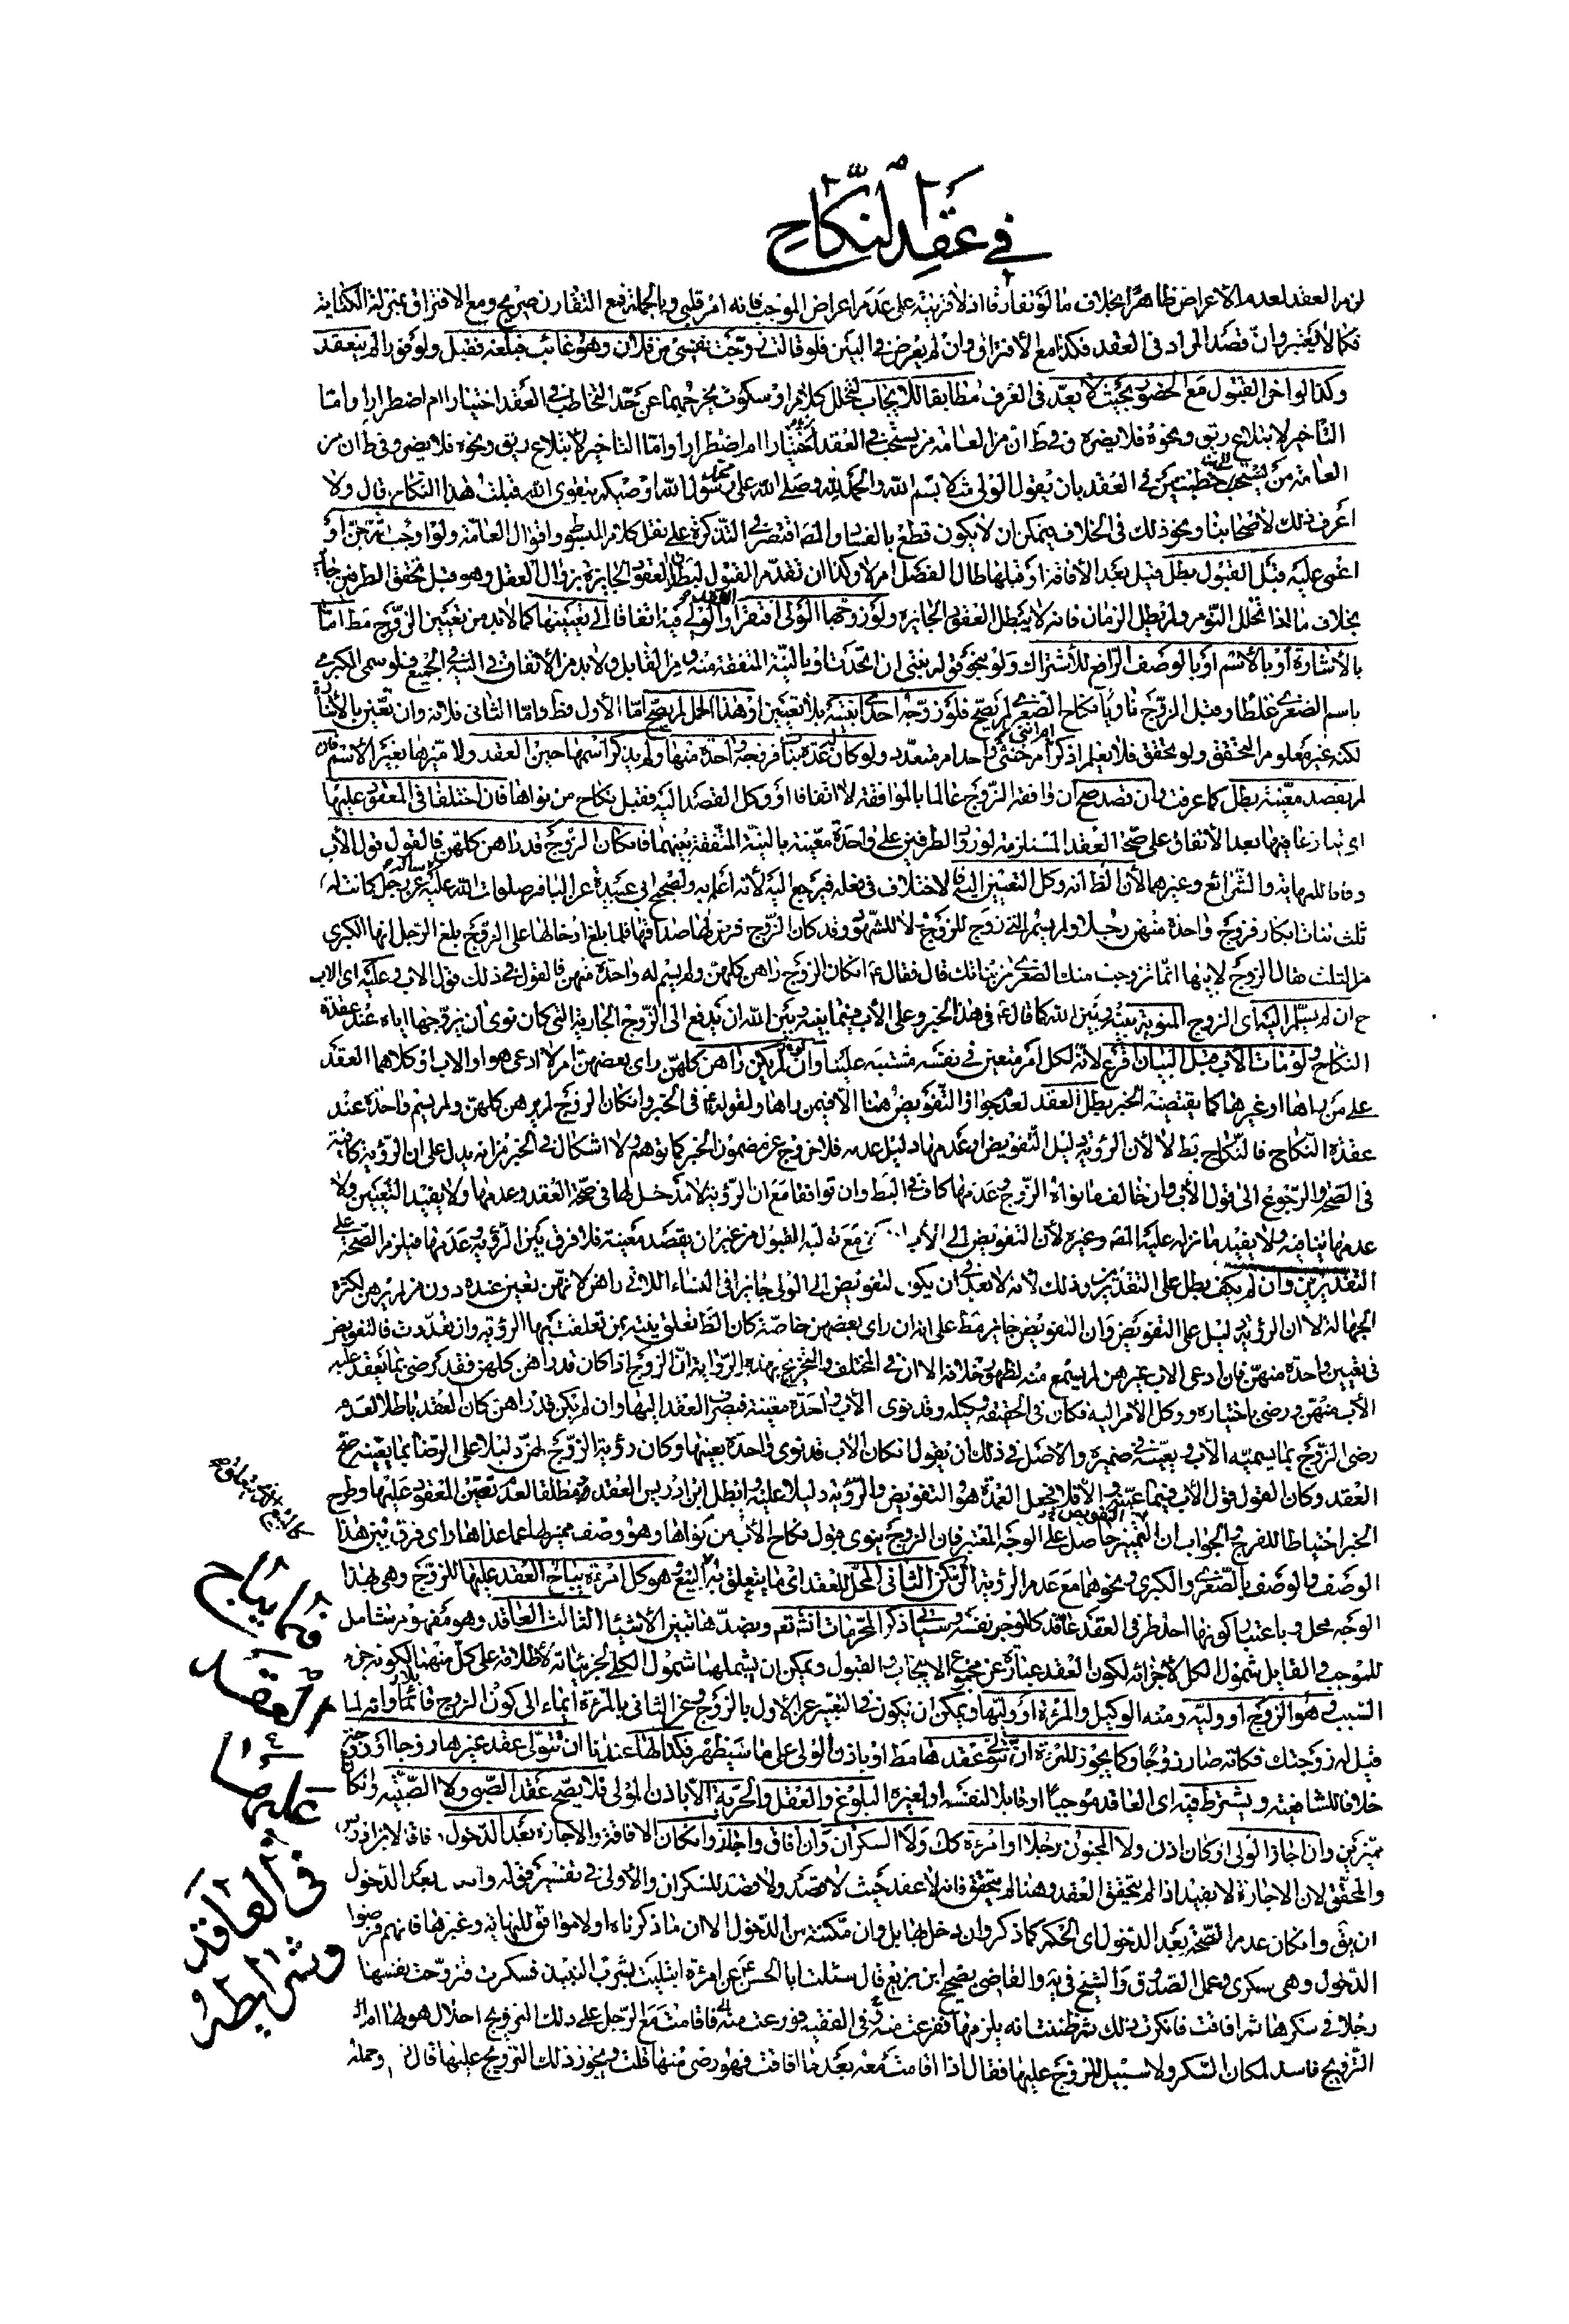 في عقد النكاح
لزم العقد لعدم الاعراض ظاهرا بخلاف ما لو تفارقا اذ لا قرينة على عدم اعراض الموجب فانه امر قلبي وبالجملة فمع التقارن صريح ومع الافتراق بمنزلة الكناية
فكما لا يعتبر وان قصد المراد في العقد فكذا مع الافتراق وان لم يعرض في البين فلو قالت زوجت نفسي من فلان وهو غائب فبلغه فقبل ولو فورا لم ينعقد
وكذا لو اخر القبول مع الحضور بحيث لا يعد في العرف مطابقا للايجاب لتخلل كلام او سكوت يخرجهما عن حد التخاطب في العقد اختيارا ام اضطرارا واما
التأخير لابتلاع ريق ونحوه فلا يضره وفي ط ان من العامة من يستحب في العقد اختيارا ام اضطرارا واما التأخير لابتلاع ريق ونحوه فلا يضر وفي ط ان من
العامة من يستحب خطبتين في العقد بان يقول الولي مثلا بسم الله والحمد لله وصلى الله على محمد رسول الله اوصيكم بتقوى الله قبلت هذا النكاح قال ولا
اعرف ذلك لاصحابنا ونحو ذلك في الخلاف يمكن ان لا يكون قطع بالفساد والمصـ اقتصر في التذكرة على نقل كلام المبسوط واقوال العامة ولو اوجب ثم جن او
اغمى عليه قبل القبول بطل قبل بعد الافاقة او قبلها طال الفصل ام لا وكذا ان تقدم القبول لبطلان العقود الجايزة بزوال العقل وهو قبل تحقق الطرفين جايز
بخلاف ما اذا تخلل النوم ولم يطل الزمان فانه لا يبطل العقود الجايزة ولو زوجها الولي افتقر العقد او الولي فيه اتفاقا الى تعيينها كما لا بد من تعيين الزوج مط اما
بالاشارة او بالاسم او بالوصف الرافع للاشتراك ولو بنحو قوله بنتي ان اتحدت او بالنية المتفقة منه ومن القابل ولا بد من الاتفاق في النية في الجميع فلو سمى الكبرى
باسم الصغرى غلطا وقبل الزوج ناويا نكاح الصغرى لم يصح فلو زوجه احدى ابنتيه بلا تعيين او هذا الحمل لم يصح اما الاول فظ واما الثاني فلانه وان تعين بالاشارة
لكنه غير معلوم التحقق ولو تحقق فلا يعلم اذكر ام خنثى ام انثى واحد ام متعدد ولو كان له عدة بنات فزوجه واحدة منها ولم يذكر اسمها حين العقد ولا ميزها بغير الاسم فان
لم يقصد معينة بطل كما عرفت وان قصد صح ان وافقه الزوج عالما بالموافقة لا اتفاقا او وكل القصد اليه فقبل نكاح من نواها فان اختلفا في المعقود عليها
اي تنازعا فيها بعد الاتفاق على صحة العقد المستلزمة لورود الطرفين على واحدة معينة بالنية المتفقة بينهما فان كان الزوج قد راهن كلهن فالقول قول الاب
وفاقا للنهاية والشرائع وغيرهما لان الظ انه وكل التعيين اليه فالاختلاف في فعله فيرجع اليه لانه اعلم به ولصحيح ابي عبيدة عن الباقر صلوات الله عليه عن رجل كانت له
ثلث بنات ابكار فزوج واحدة منهن رجلا ولم يسم التي زوج للزوج ولا للشهود وقد كان الزوج فرض لها صداقها فلما بلغ ادخالها على الزوج بلغ الرجل انها الكبرى
من الثلث فقال الزوج لابيها انما تزوجت منك الصغرى من بناتك قال فقال ع ان كان الزوج راهن كلهن ولم يسم له واحدة منهن فالقول في ذلك قول الاب وعليه اي الاب
ح ان لم يسلم اليه اي الزوج المنوية بينه وبين الله كما قال ع في هذا الخبر وعلى الاب فيما بينه وبين الله ان يدفع الى الزوج الجارية التي كان نوى ان يزوجها اياه عند عقدة
النكاح ولو مات الاب قبل البيان اقرع لانه لكل امر متعين في نفسه مشتبه علينا وان لم يكن راهن كلهن راى بعضهن ام لا ادعى هو او الاب او كلاهما العقد
على من راها او غيرها كما يقتضيه الخبر بطل العقد لعدم جواز التفويض هنا الا فيمن راها ولقوله ع في الخبر وان كان الزوج لم يرهن كلهن ولم يسم واحدة عند
عقدة النكاح فالنكاح بط لا لان الرؤية دليل التفويض او عدمها دليل عدمه فلا خروج عن مضمون الخبر كما توهم ولا اشكال في الخبر من انه يدل على ان الرؤية كافية
في الصحة والرجوع الى قول الاب وان خالف ما نواه الزوج وعدمها كاف في البط وان توافقا مع ان الرؤية لا مدخل لها في صحة العقد وعدمها ولا يفيد التعيين ولا
عدمها ينافيه ولا يفيد ما نزله عليه المصـ وغيره لان التفويض الى الاب القبول من غير ان يقصد معينة فلا فرق بين الرؤية وعدمها فيلزم الصحة على
التقديرين وان لم يكف بطل على التقديرين وذلك لانه لا بعد في ان يكون التفويض الى الولي جايزا في النساء اللاتي راهن لانهن تعين عنده دون من لم يرهن لكثرة
الجهالة لا ان الرؤية دليل على التفويض وان التفويض جايز مط على انه ان راى بعضهن خاصة كان الظ تعلق نيته بمن تعلقت بها الرؤية وان تعددت فالتفويض
في تعيين واحدة منهن فان ادعى الاب غيرهن لم يسمع منه لظهور خلافه الا ان في المختلف والتخريج بهذه الرواية ان الزوج اذا كان قد راهن كلهن فقد رضي بما يعقد عليه
الاب منهن ورضي باختياره ووكل الامر اليه فكان في الحقيقة وكيله وقد نوى الاب واحدة معينة فينصرف العقد اليها وان لم يكن قد راهن كان العقد باطلا لعدم
رضى الزوج بما يسميه الاب ويعينه في ضميره والاصل في ذلك ان يقول ان كان الاب قد نوى واحدة بعينها وكان رؤية الزوج لهن دليلا على الرضا بما يعينه صح
العقد وكان القول قول الاب فيما عينه والا فلا فجعل العمدة هو التفويض والرؤية دليلا عليه وابطل ابن ادريس العقد مطلقا لعدم تعيين المعقود عليها وطرح
الخبر احتياطا للفروج والجواب ان التمييز حاصل على الوجه المعتبر فان الزوج ينوي قبول نكاح الاب من نواها وهو وصف مميز لها عما عداها واي فرق بين هذا
الوصف والوصف بالصغرى والكبرى ونحوهما مع عدم الرؤية الركن الثاني المحل للعقد اي ما يتعلق به البضع وهو كل امرئة يباح العقد عليها للزوج وهي بهذا
الوجه محل وباعتبار كونها احد طرفي العقد عاقد كالموجر نفسه وسيأتي ذكر المحرمات انشاء تع وبضدها تتبين الاشياء الثالث العاقد وهو مفهوم شامل
للموجب والقابل شمول الكل لاجزائه لكون العقد عبارة عن مجموع الايجاب والقبول ويمكن ان يشملهما شمول الكلي لجزئياته لاطلاقه على كل منهما لكونه جزء
السبب وهو الزوج او وليه ومنه الوكيل والمرئة او وليها ويمكن ان يكون في التعبير عن الاول بالزوج وعن الثاني بالمرئة ايماء الى كون الزوج قابلا وانه لما
قيل له زوجتك فكانه صار زوجا وكما يجوز للمرئة ان تتولى عقدها مط او باذن الولي على ما سيظهر فكذا لها عندنا ان تتولى عقد غيرها زوجا او زوجة
خلافا للشافعية ويشترط فيه اي العاقد موجبا او قابلا لنفسه او لغيره البلوغ والعقل والحرية الا باذن المولى فلا يصح عقد الصبي ولا الصبية وان كانا
مميزين وان اجاز الولي او كان اذن ولا المجنون رجلا او امرئة كك ولا السكران وان افاق واجاز وان كان الافاقة والاجازة بعد الدخول وفاقا لابن ادريس
والمحقق لان الاجازة لا يفيد اذا لم يتحقق العقد وهنا لم يتحقق فانه لا عقد حيث لا قصد ولا قصد للسكران والاولى في تفسير قوله بعد الدخول
ان يق وان كان عدم الصحة بعد الدخول اي الحكم كما ذكر وان دخل بها بل وان مكنته من الدخول الا ان ما ذكرناه اولا موافق للنهاية وغيرها فانهم فرضوا
الدخول وهي سكرى وعمل الصدوق والشيخ في يه والقاضي بصحيح ابن بزيع قال سئلت ابا الحسن ع عن امرئة ابتليت بشرب النبيذ فسكرت فزوجت نفسها
رجلا في سكرها ثم افاقت فانكرت ذلك ثم ظنت انه يلزمها ففزعت منه وفي الفقيه فورعت منه فاقامت مع الرجل على ذلك التزويج احلال هو لها ام
التزويج فاسد لمكان السكر ولا سبيل للزوج عليها فقال اذا اقامت معه بعد ما افاقت فهو رضى منها قلت ويجوز ذلك التزويج عليها قال نعم وحمله
فيما يباح
العقد
عليها
في العاقد
وشرايطه